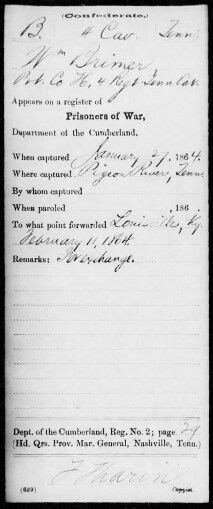 (Confederate.)
B. 4 Cav. Tenn.
Wm Brimer
Pvt. Co H, 4 Regt Tenn Cav.
Appears on a register of
Prisoners of War,
Department of the Cumberland.
When captured January 27, 1864.
Where captured Pigeon River, Tenn.
By whom captured
When paroled , 186 .
To what point forwarded Louisville, Ky.
February 11, 1864.
Remarks: For exchange.
Dept. of the Cumberland, Reg. No. 2; page 29
(Hd. Qrs. Prov. Mar. General, Nashville, Tenn.)
(639) Copyist.